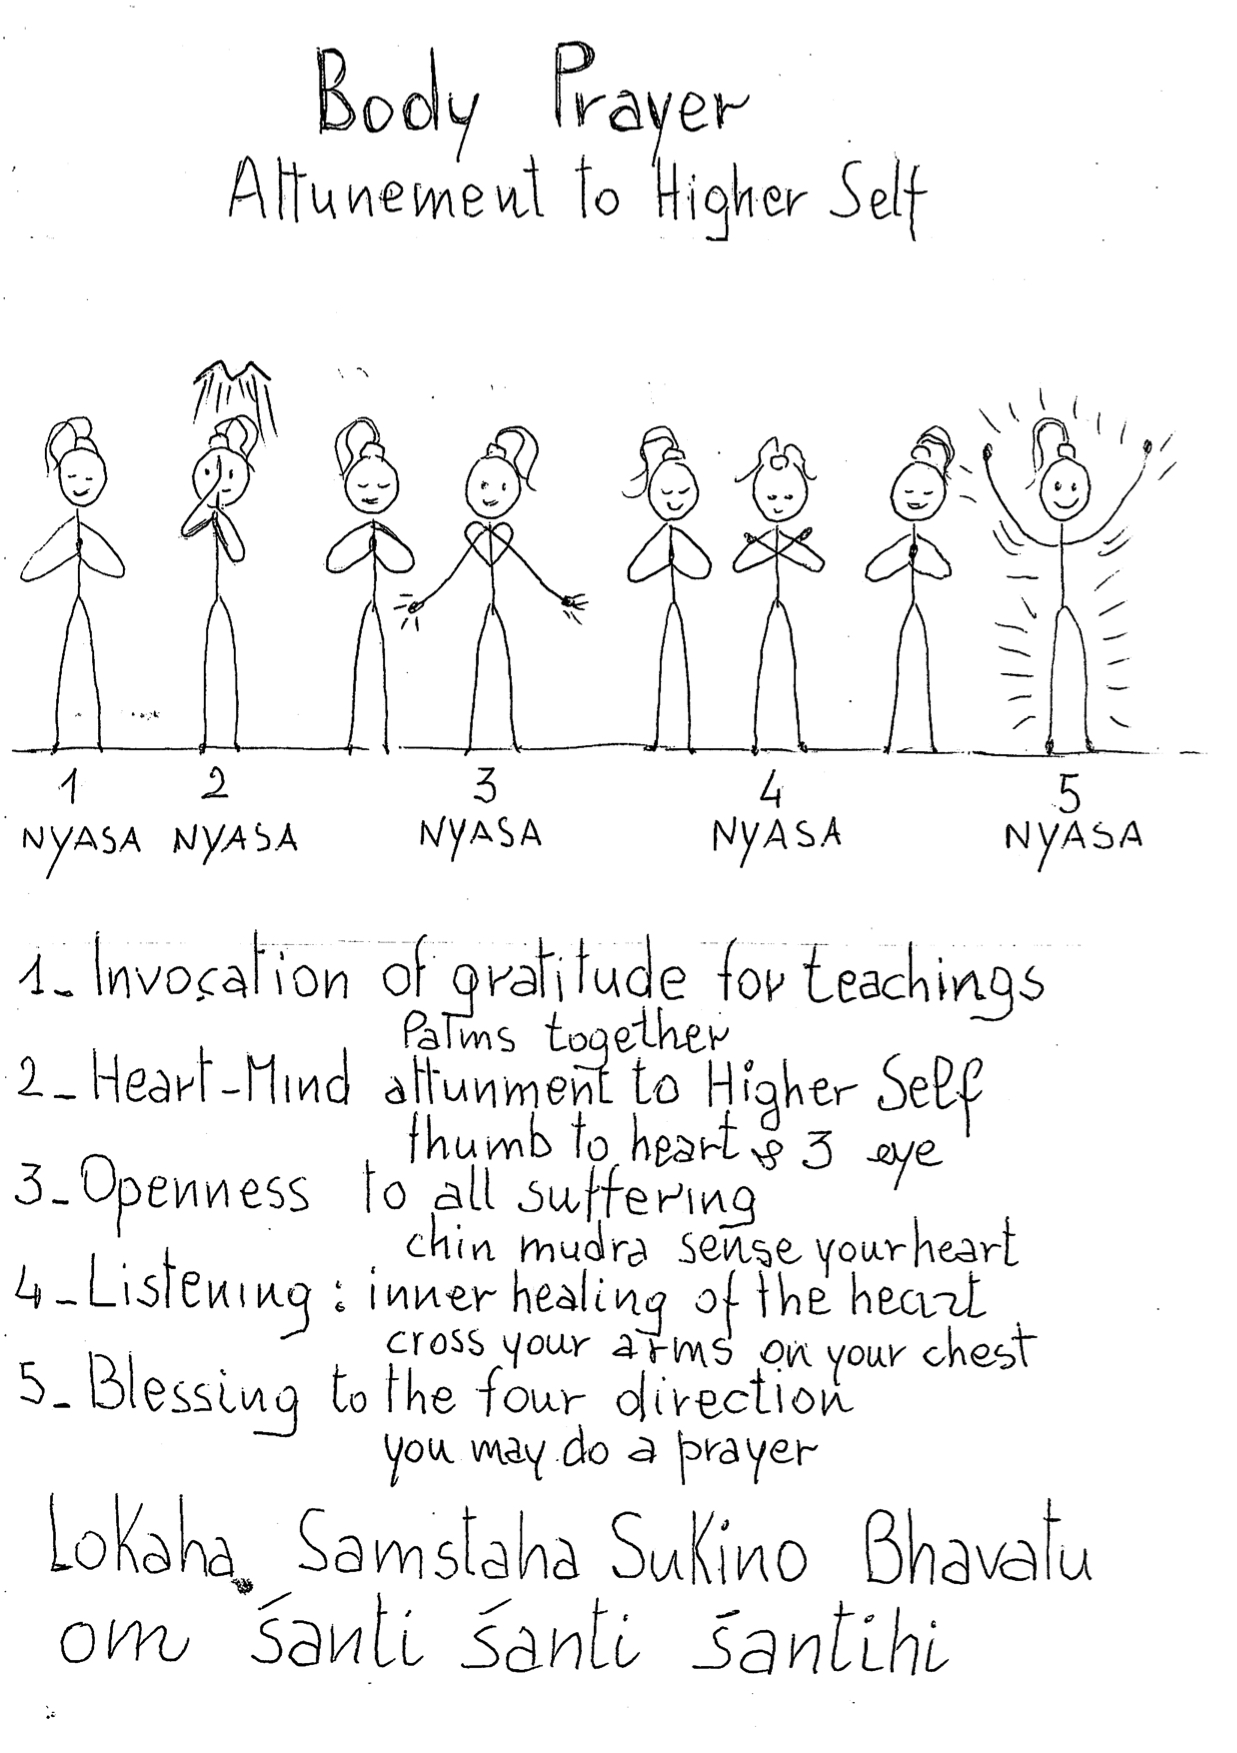 Body Prayer
Attunement to Higher Self
1 2 3 4 5
NYASA NYASA NYASA NYASA NYASA
1- Invocation of gratitude for teachings
Palms together
2- Heart-Mind attunment to Higher Self
thumb to heart & 3 eye
3- Openness to all suffering
chin mudra sense your heart
4- Listening : inner healing of the heart
cross your arms on your chest
5- Blessing to the four direction
you may do a prayer
Lokaha Samstaha Sukino Bhavatu
om śanti śanti śantihi